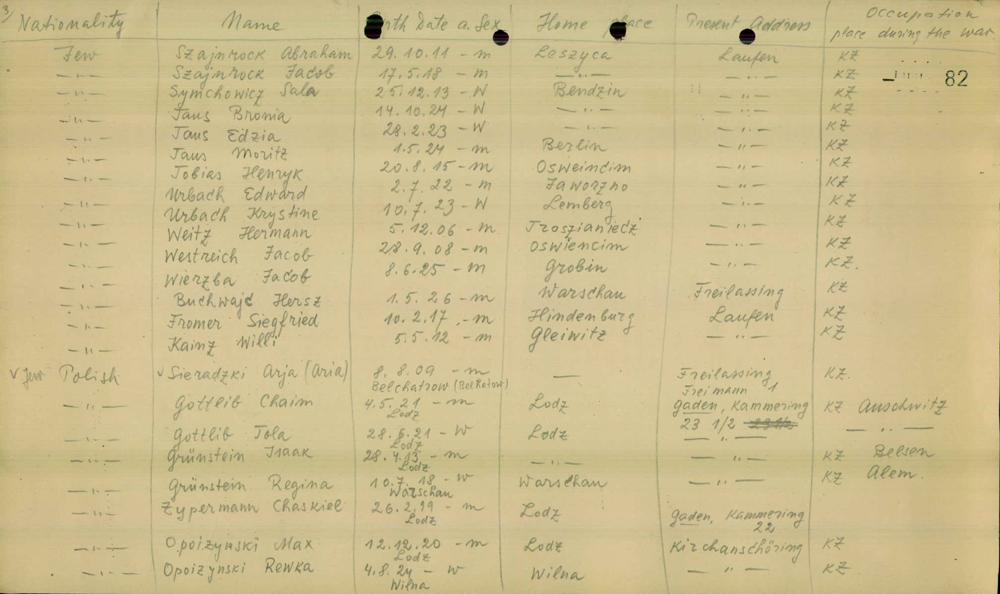 3/ Nationality Name Birth Date a. Sex Home place Present Address Occupation place during the war
82
Jew Szajnrock Abraham 29.10.11 - m Leszyca Laufen KZ
-"- Szajnrock Jacob 17.5.18 - m -"- -"- KZ
-"- Symchowicz Sala 25.12.13 - W Bendzin -"- KZ
-"- Taus Bronia 14.10.24 - W -"- -"- KZ
-"- Taus Edzia 28.2.23 - W -"- -"- KZ
-"- Taus Moritz 1.5.24 - m Berlin -"- KZ
-"- Tobias Henryk 20.8.15 - m Osweincim -"- KZ
-"- Urbach Edward 2.7.22 - m Jaworzno -"- KZ
-"- Urbach Krystine 10.7.23 - W Lemberg -"- KZ
-"- Weitz Hermann 5.12.06 - m Troszianiedz -"- KZ
-"- Westreich Jacob 28.9.08 - m Oswiencim -"- KZ
-"- Wierzba Jacob 8.6.25 - m Grobin -"- KZ.
-"- Buchwajc Hersz 1.5.26 - m Warschau Freilassing KZ
-"- Fromer Siegfried 10.2.17. - m Hindenburg Laufen KZ
-"- Kainz Willi 5.5.12 - m Gleiwitz -"- KZ
v Jew Polish v Sieradzki Arja (Aria) 8.8.09 - m — Freilassing KZ.
Belchatrow (Belkatow) Freimann 1
-"- Gottlib Chaim 4.5.21 - m Lodz Gaden, Kammering KZ Auschwitz
Lodz 23 1/2 23 1/2
-"- Gottlib Tola 28.6.21 - W Lodz -"- -"-
Lodz
-"- Grünstein Isaak 28.4.13 - m -"- -"- KZ Belsen
Lodz
-"- Grünstein Regina 10.7.18 - W Warschau -"- KZ Alem.
Warschau
-"- Zypermann Chaskiel 26.2.19 - m Lodz Gaden, Kammering
Lodz 22
-"- Opoizynski Max 12.12.20 - m Lodz Kirchanschöring KZ
Lodz
-"- Opoizynski Rewka 4.8.24 - W Wilna -"- KZ
Wilna